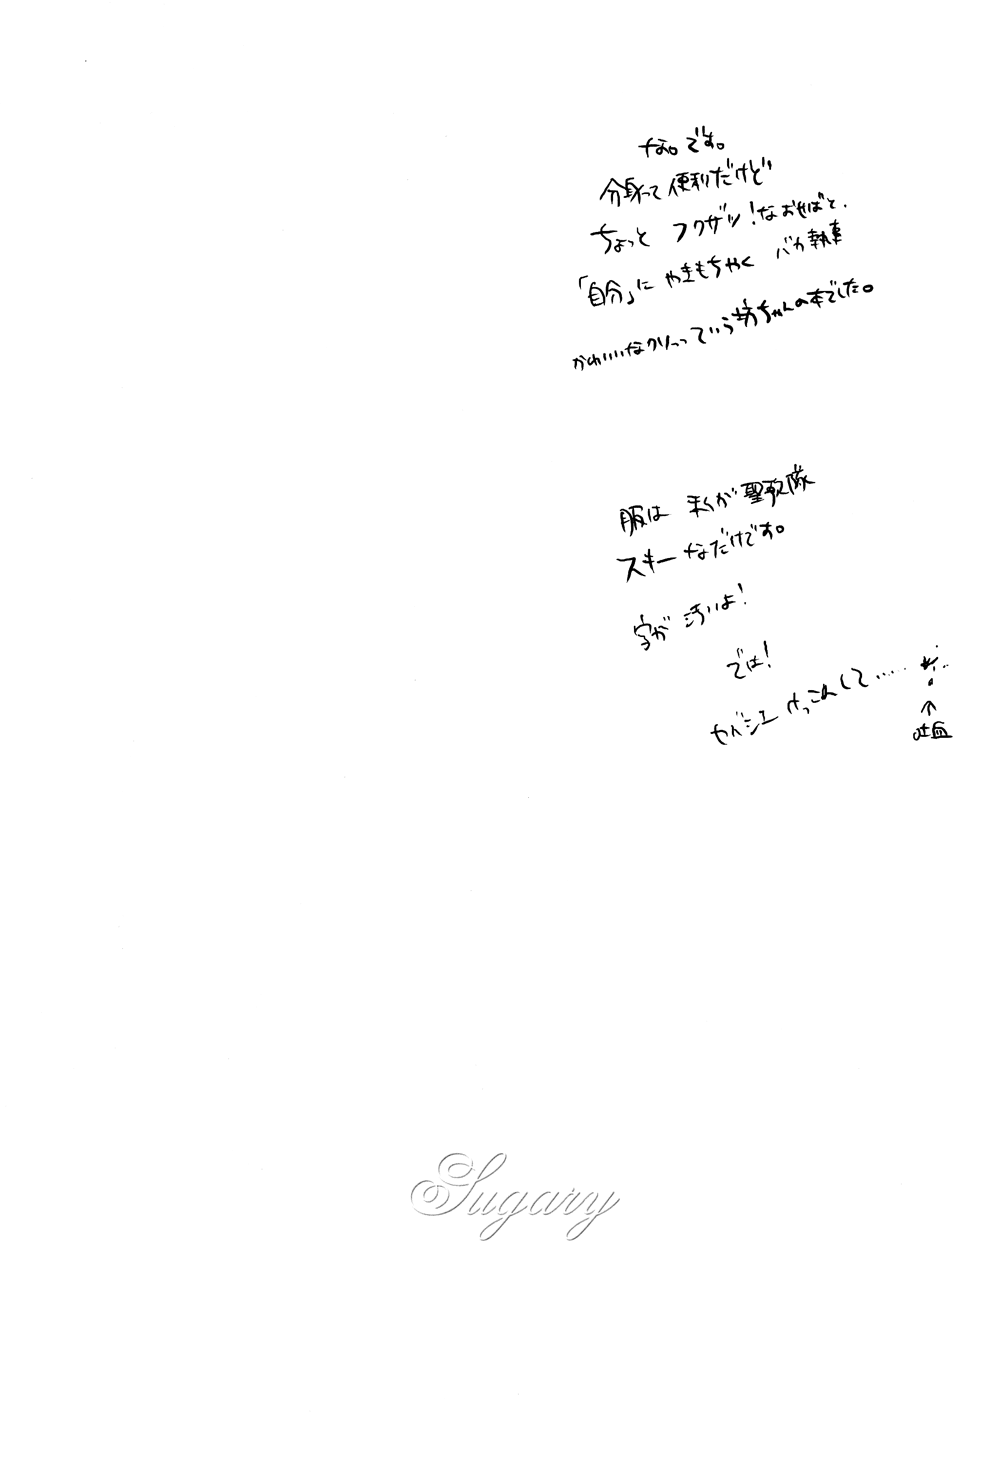 な。です。
分身って便利だけど
ちょっと フクザツ!なおせばと、
「自分」に やきもちやく バカ執事
かわいいなクソっていう坊ちゃんの本でした。
服は 末くが 聖歌隊
スキーなだけです。
字が 汚いよ!
では!
セバシエ けっこんして……
↑
吐血
Sugary